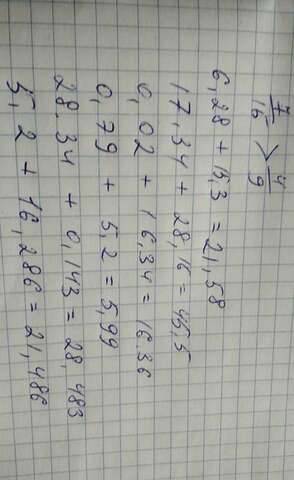 7/16 > 4/9
6,28 + 15,3 = 21,58
17,34 + 28,16 = 45,5
0,02 + 16,34 = 16.36
0,79 + 5,2 = 5,99
28.34 + 0,143 = 28,483
5,2 + 16,286 = 21,486